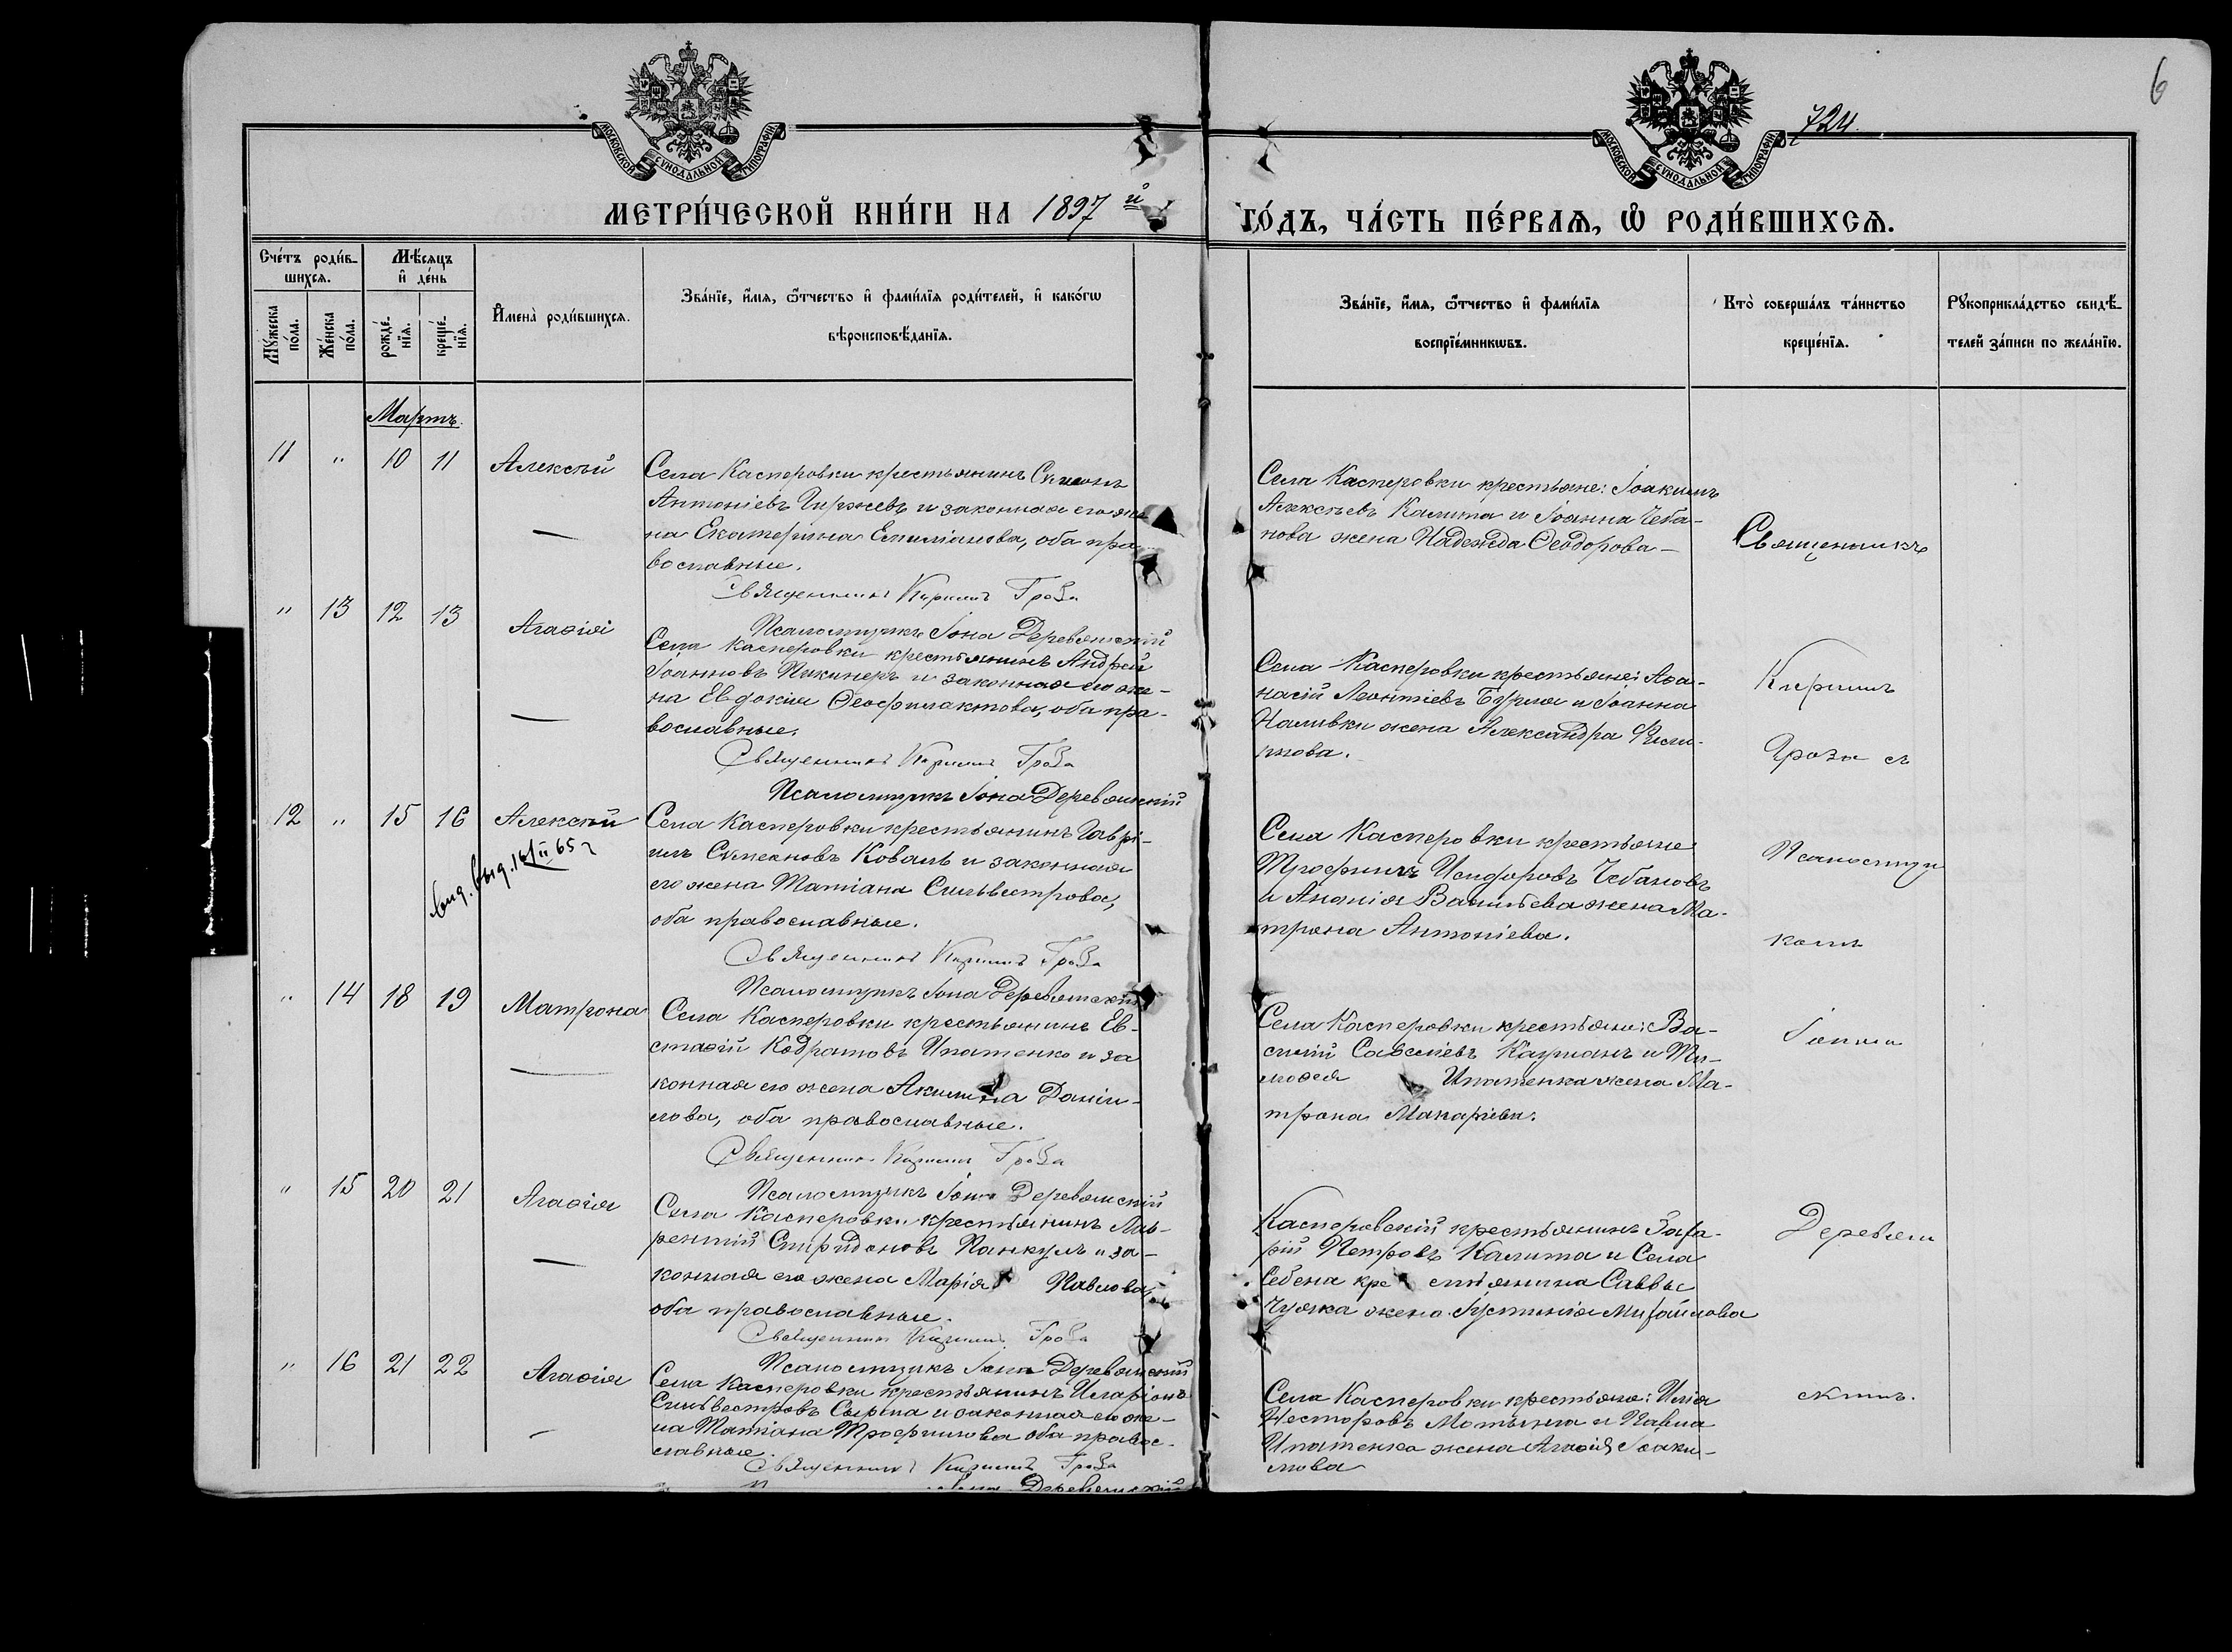 6
724.
МОСКОВСКОЙ СУНОДАЛЬНОЙ ТИПОГРАФІИ.
МОСКОВСКОЙ СУНОДАЛЬНОЙ ТИПОГРАФІИ.
МЕТРИ́ЧЕСКОЙ КНИ́ГИ НА 1897 й
ГО́ДЪ, ЧА́СТЬ ПЕ́РВАѦ, Ѡ РОДИ́ВШИХСѦ.
Сче́тъ роди́в-
шихсѧ.
Мѣ́сяцъ
и де́нь
Му́жеска
по́ла.
Же́нска
по́ла.
рожде́-
нїѧ.
креще́-
нїѧ.
И҆мена̀ роди́вшихсѧ.
Зва́нїе, и҆́мѧ, ѻ҆́тчество и҆ фами́лїѧ роди́телей, и҆ како́гѡ
вѣроисповѣ́данїѧ.
Зва́нїе, и҆́мѧ, ѻ҆́тчество и҆ фами́лїѧ
воспрїе́мникѡвъ.
Кто̀ соверша́лъ та́инство
креще́нїѧ.
Рꙋкоприкла́дство свидѣ́-
телей за́писи по жела́нїю.
Мартъ.
11 " 10 11 Алексѣй
Села Касперовки крестьянинъ Симеонъ
Антоніевъ и законная его же
на Екатерина Емиліанова, оба пра
вославные.
Священникъ Кириллъ Гроза
Псаломщикъ Іона Деревянскій
Села Касперовки крестьяне: Іоакимъ
Алексѣевъ Калита и Іоанна Чеба-
нова жена Надежда Ѳеодорова —
Священникъ
" 13 12 13 Агаѳія
Села Касперовки крестьянинъ Андрей
Іоанновъ Пикинеръ и законная его же-
на Евдокія Ѳеофилактова, оба пра-
вославные.
Священникъ Кириллъ Гроза
Псаломщикъ Іона Деревянскій
Села Касперовки крестьяне: Аѳа-
насій Леонтіевъ Бурла и Іоанна
Наливки жена Александра Фили-
ппова.
Кириллъ
Гроза съ
12 " 15 16 Алексѣй
вид. выд. 16/II 65 г
Села Касперовки крестьянинъ Гаврі-
илъ Симеоновъ Коваль и законная
его жена Татіана Сильвестрова,
оба православные.
Священникъ Кириллъ Гроза
Псаломщикъ Іона Деревянскій
Села Касперовки крестьяне
Трофимъ Исидоровъ Чебановъ
и Ананія Васильева жена Ма-
трона Антоніева.
Псаломщи
комъ
" 14 18 19 Матрона
Села Касперовки крестьянинъ Ев-
стаѳій Кодратовъ Ипатенко и за
конная его жена Акилина Даніи-
лова, оба православные.
Священникъ Кириллъ Гроза
Псаломщикъ Іона Деревянскій
Села Касперовки крестьяне: Ва-
силій Савеліевъ и Ти-
моѳея Ипатенка жена Ма-
трона Макаріева.
Іоною
" 15 20 21 Агаѳія
Села Касперовки крестьянинъ Лав-
рентій Спиридоновъ Панкулъ и за-
конная его жена Марія Павлова,
оба православные.
Священникъ Кириллъ Гроза
Псаломщикъ Іона Деревянскій
Касперовскій крестьянинъ Заха-
рій Петровъ Калита и Села
Себена крестьянина Саввы
Чужка жена Іустинія Михайлова
Деревян
" 16 21 22 Агаѳія
Села Касперовки крестьянинъ Иларіонъ
Сильвестровъ Сырма и законная его же-
на Татіана Трофимова оба правос-
славные.
Священникъ Кириллъ Гроза
Деревянскій
Села Касперовки крестьяне: Илія
Несторовъ Мотынга и Павла
Ипатенка жена Агаѳія Іоаки-
мова
скимъ.